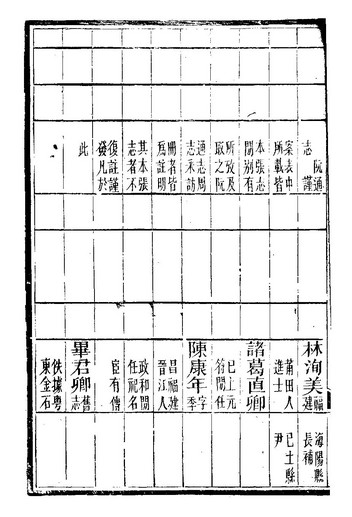 阮通
志謹
案表中
所載皆
本張志
間别有
所攷及
取之阮
通志周
志采訪
冊者皆
爲註明
其本張
志者不
復註謹
發凡於
此
林洵美福
建
莆田人
進士
諸葛直卿
已上元
符間任
陳康年字
季
昌福建
晉江人
政和間
任祀名
宦有傳
畢君卿舊
志
佚據粤
東金石
海陽縣
長補
已上縣
尹